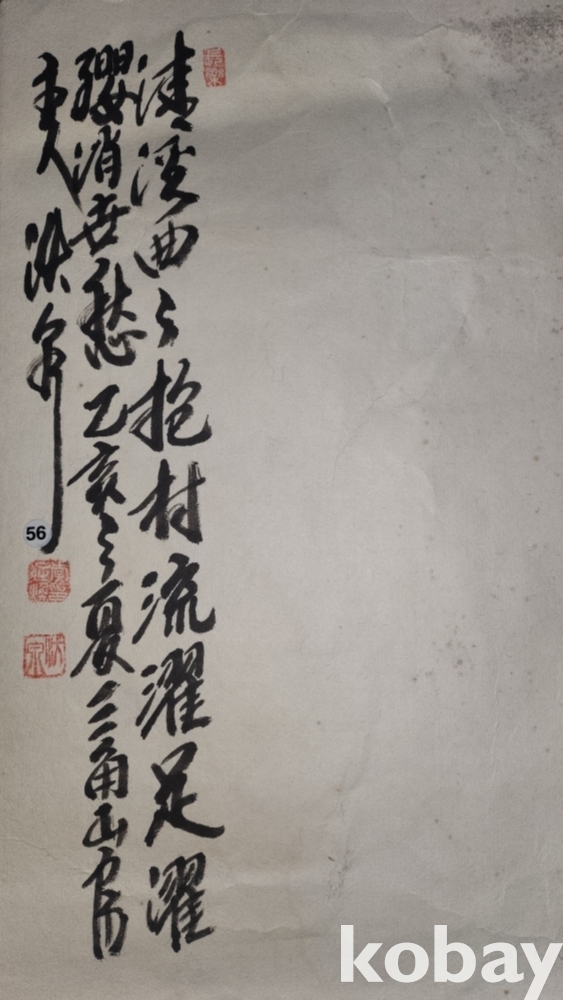 清溪曲々抱村流濯足濯
纓消世愁乙亥之夏三角山房
主人
56
kobay